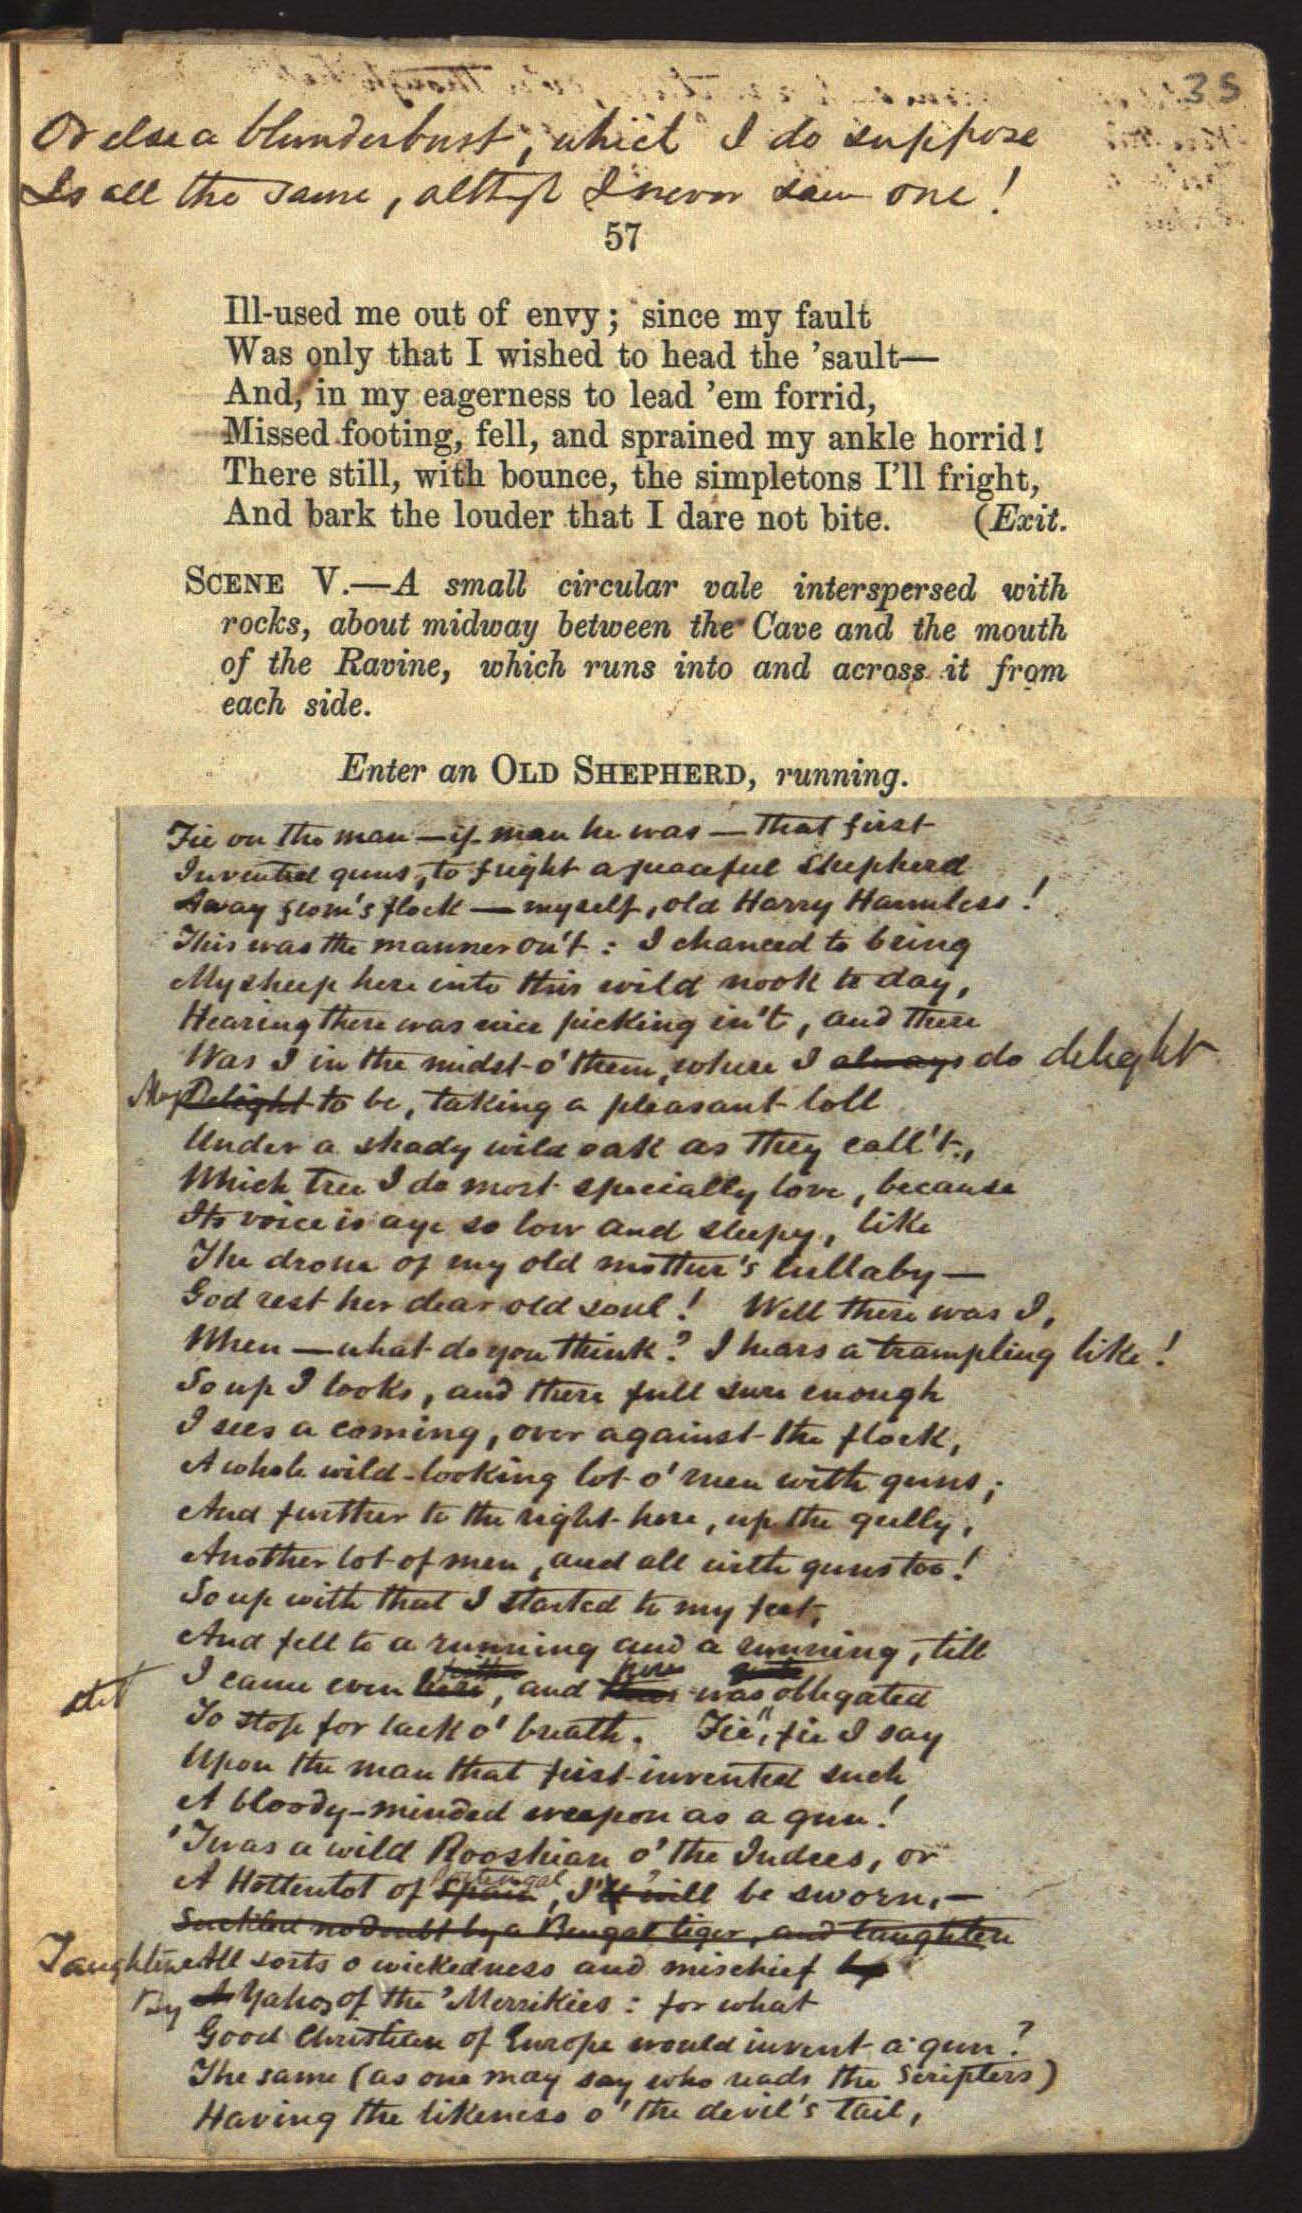 35
Or else a blunderbust, which I do suppose
Is all the same, altho' I never saw one!
57
Ill-used me out of envy; since my fault
Was only that I wished to head the 'sault—
And, in my eagerness to lead 'em forrid,
Missed footing, fell, and sprained my ankle horrid!
There still, with bounce, the simpletons I'll fright,
And bark the louder that I dare not bite. (Exit.
SCENE V.—A small circular vale interspersed with
rocks, about midway between the Cave and the mouth
of the Ravine, which runs into and across it from
each side.
Enter an OLD SHEPHERD, running.
Fie on the man—if man he was—that first
Invented guns, to fright a peaceful Shepherd
Away from's flock—myself, old Harry Harmless!
This was the manner on't: I chanced to bring
My sheep here into this wild nook to day,
Hearing there was nice picking in't, and there
Was I in the midst o' them, where I always do delight
Delight to be, taking a pleasant loll
Under a shady wild oak as they call't,
Which tree I do most specially love, because
Its voice is aye so low and sleepy, like
The drone of my old mother's lullaby—
God rest her dear old soul! Well there was I,
When—what do you think? I hears a trampling like!
So up I looks, and there full sure enough
I sees a coming, over against the flock,
A whole wild-looking lot o' men with guns;
And further to the right here, up the gully,
Another lot of men, and all with guns too!
So up with that I started to my feet,
And fell to a running and a running, till
here
stet I came even here, and was obligated
To stop for lack o' breath. Fie, fie I say
Upon the man that first invented such
A bloody-minded weapon as a gun!
'Twas a wild Rooshian o' the Indees, or
Portengal
A Hottentot of Spain, I'll be sworn,—
Suckled no doubt by a Bengal tiger, and taughten
Taughten All sorts o wickedness and mischief by
By A Yahoo of the 'Merrikies: for what
Good Christien of Europe would invent a gun?
The same (as one may say who reads the Scripters)
Having the likeness o' the devil's tail,